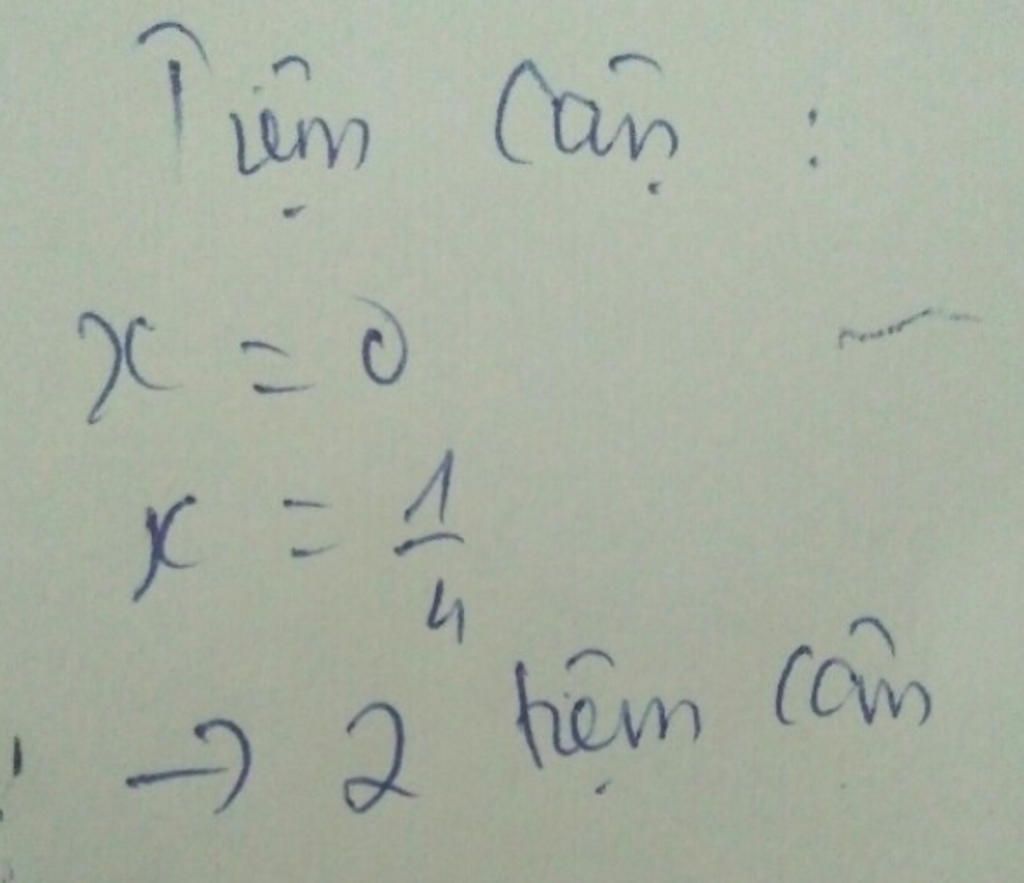 Tiệm cận :
x = 0
x = 1/4
→ 2 tiệm cận